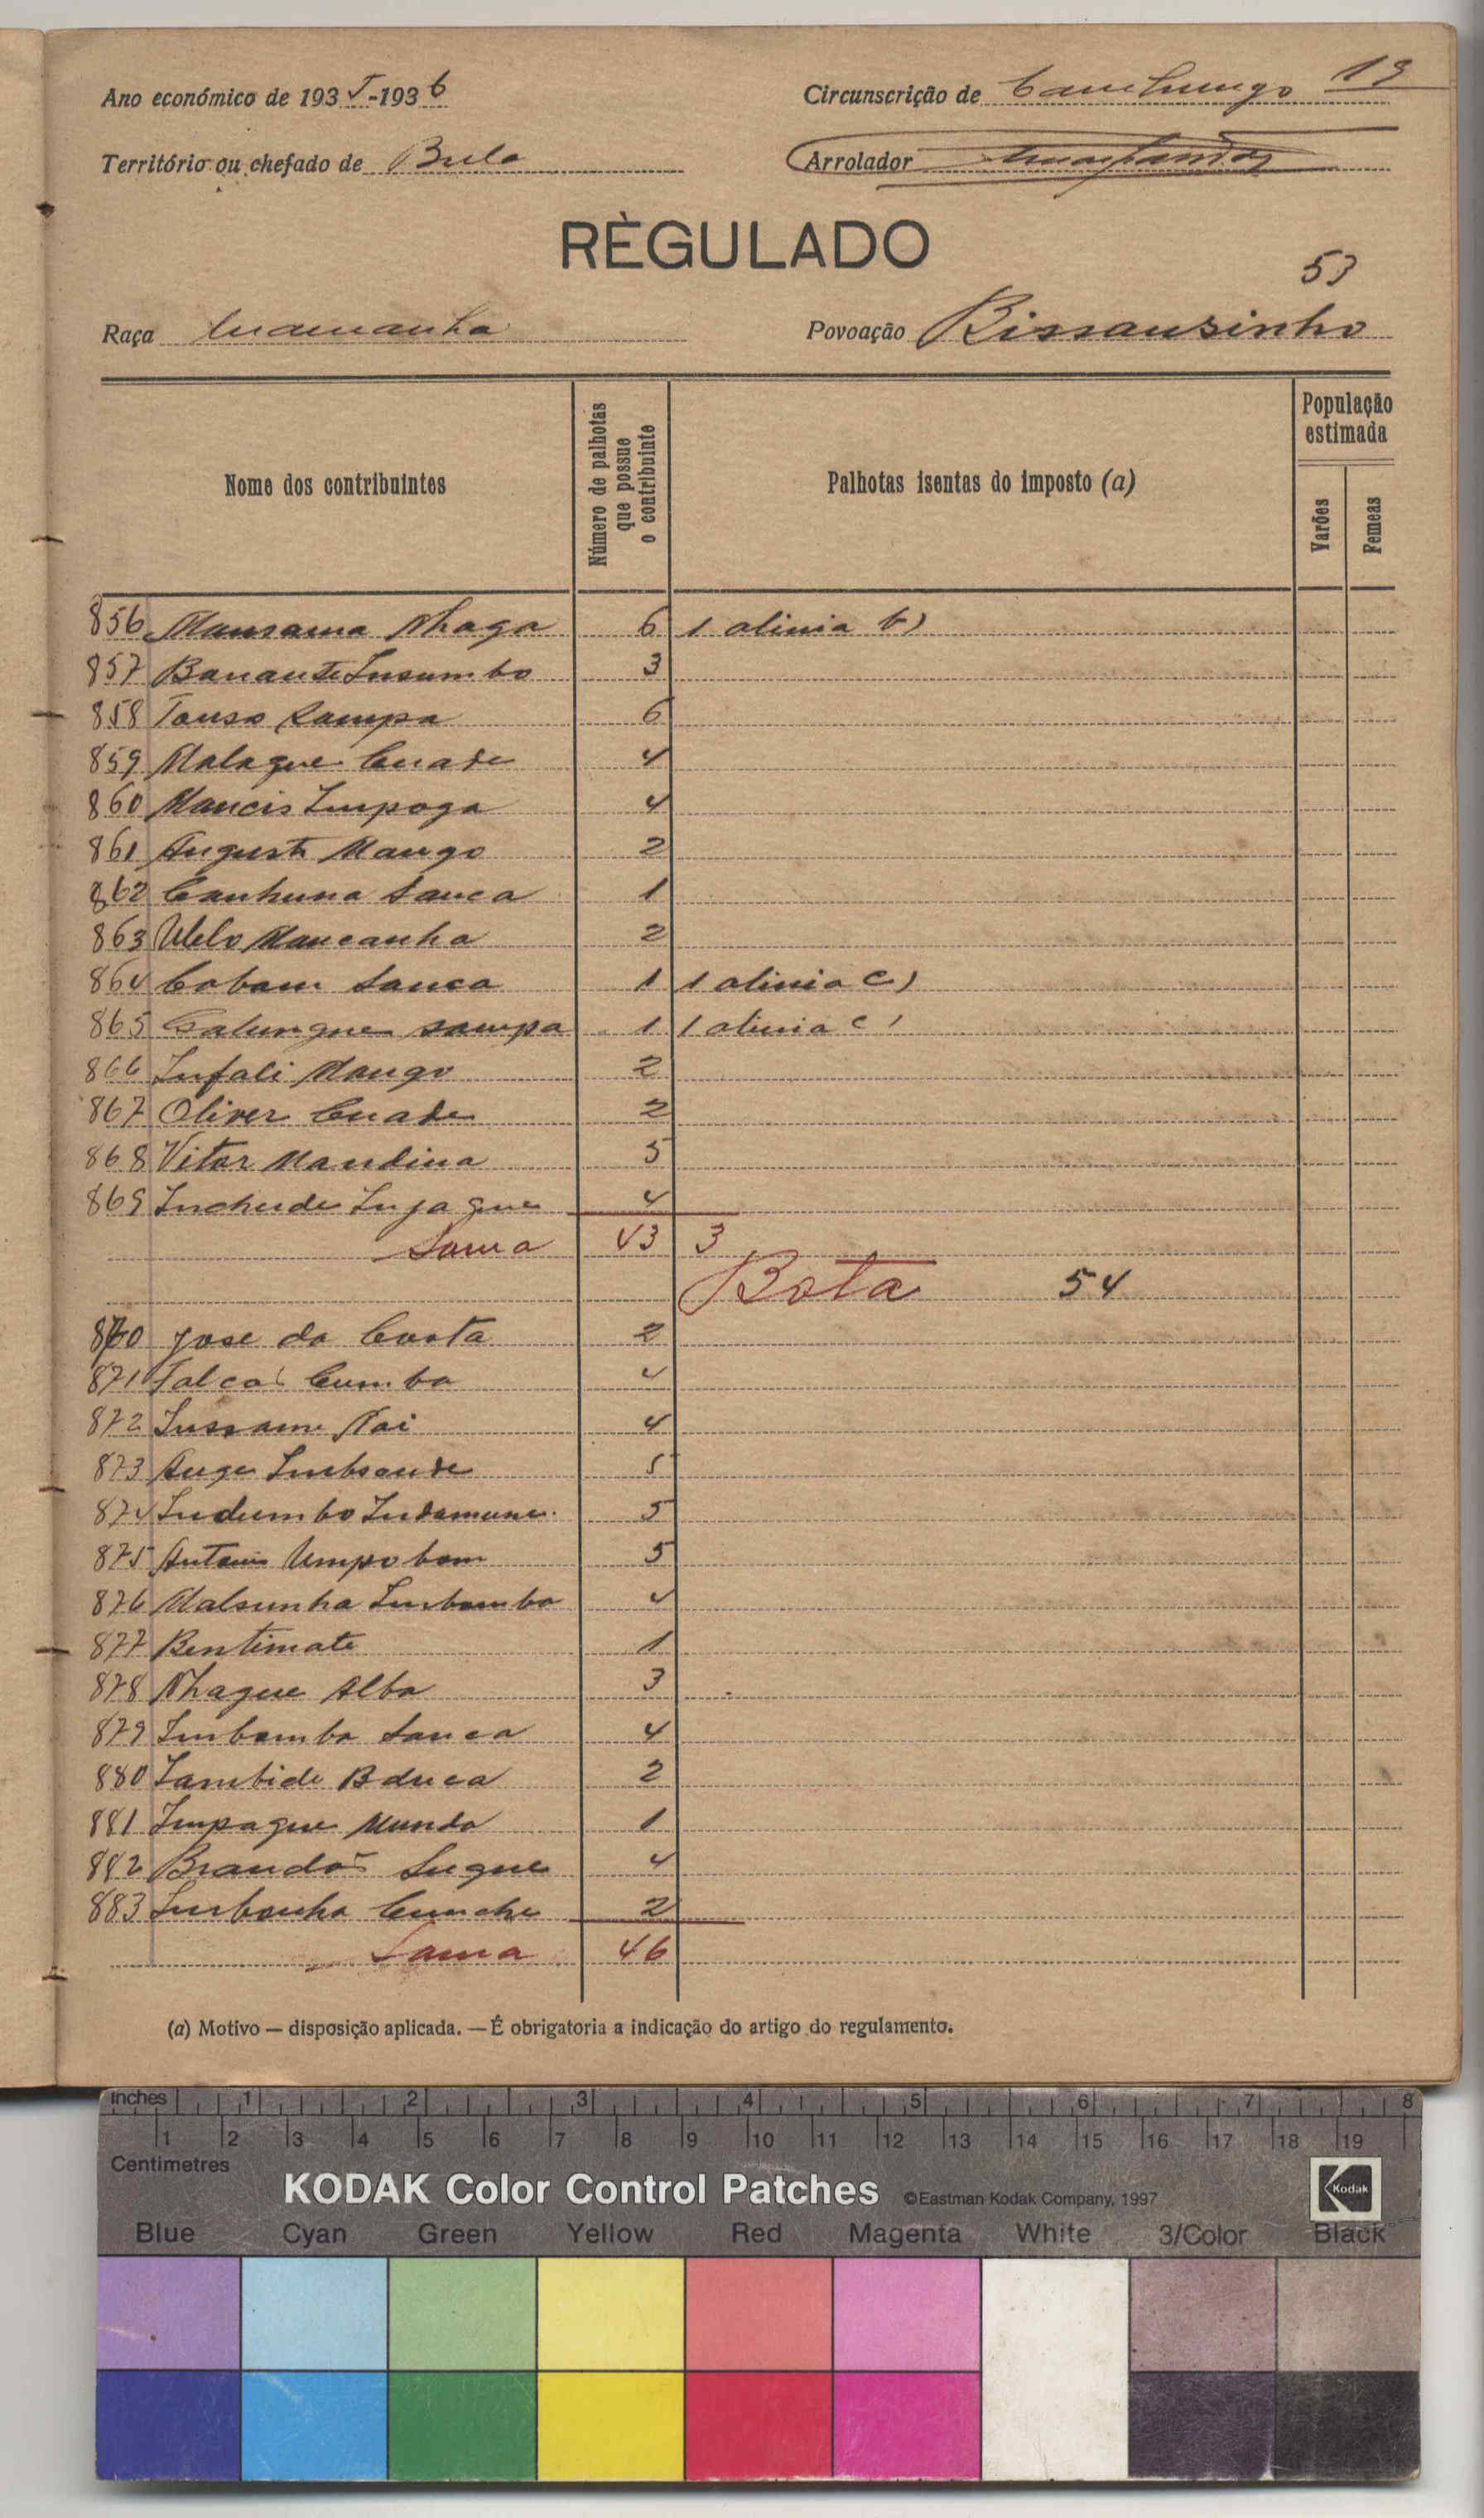 Ano económico de 1935-1936
Circunscrição de Canchungo 19
Território ou chefado de Bula
Arrolador
RÈGULADO
53
Raça Mamanha
Povoação Bissausinho
Nome dos contribuintes
Número de palhotas que possue o contribuinte
Palhotas isentas do imposto (a)
População estimada
Varões
Femeas
856 Mansama Nhaga 6 1 alinia b)
857 Banante Insumbo 3
858 Touso Sampa 6
859 Malague Cuade 4
860 Mancis Impoga 4
861 Augusto Mango 2
862 Canhuna Sanca 1
863 Ulelo Mancanha 2
864 Cobam Sanca 1 1 alinia c)
865 Galungue Sampa 1 1 alinia c)
866 Infali Mango 2
867 Oliver Cuade 2
868 Vitor Mandina 5
869 Inchude Injague 4
Soma 43 3
Bota 54
870 Jose da Costa 2
871 Falcaõ Cumba 4
872 Insame Nai 4
873 Auge Imbsonde 5
874 Indumbo Indamune 5
875 Antonio Umpobom 5
876 Malsunha Imbomba 4
877 Bentimate 1
878 Nhague Alba 3
879 Imbomba Sanca 4
880 Iambide Bduca 2
881 Impague Munda 1
882 Brandaõ Sugue 4
883 Imbonha Cunche 2
Soma 46
(a) Motivo — disposição aplicada. — É obrigatoria a indicação do artigo do regulamento.
inches 1 2 3 4 5 6 7 8
1 2 3 4 5 6 7 8 9 10 11 12 13 14 15 16 17 18 19
Centimetres
KODAK Color Control Patches ©Eastman Kodak Company, 1997 Kodak
Blue Cyan Green Yellow Red Magenta White 3/Color Black